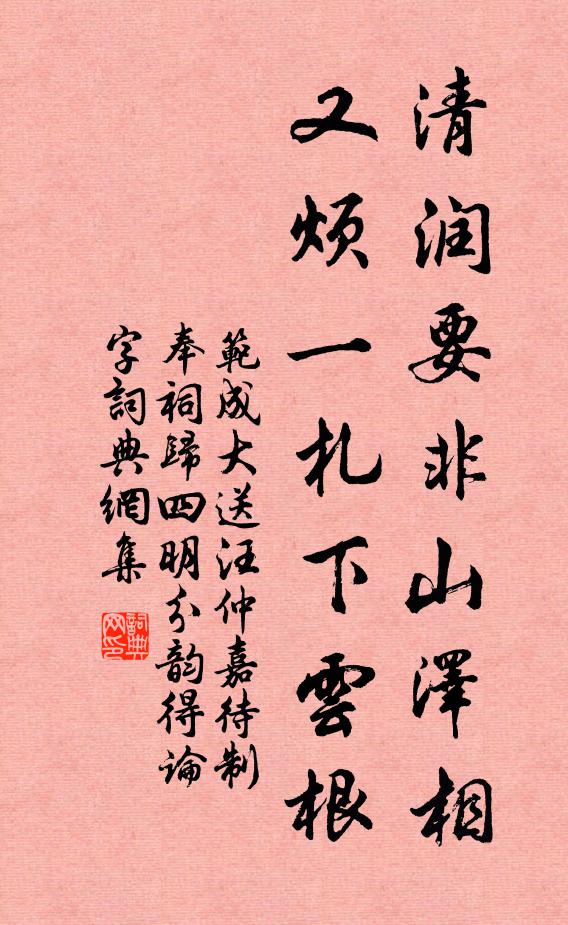 清润要非山澤相
又烦一札下雲根
範成大送汪仲嘉待制
奉祠歸四明分韵得論
字詞典網集
詞典
网印